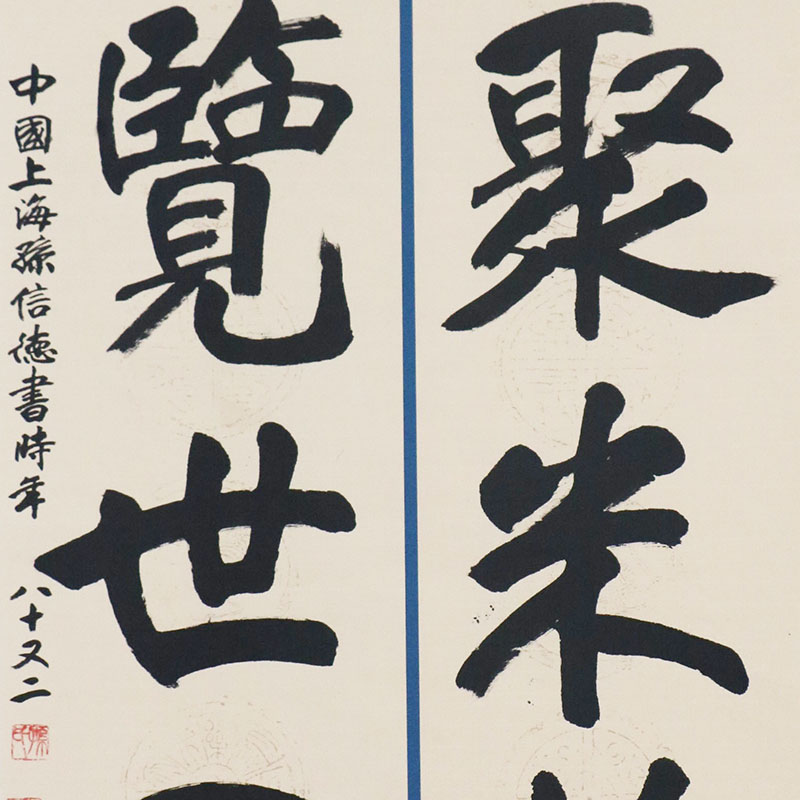 聚米
覽世
中國上海孫信德書時年八十又二